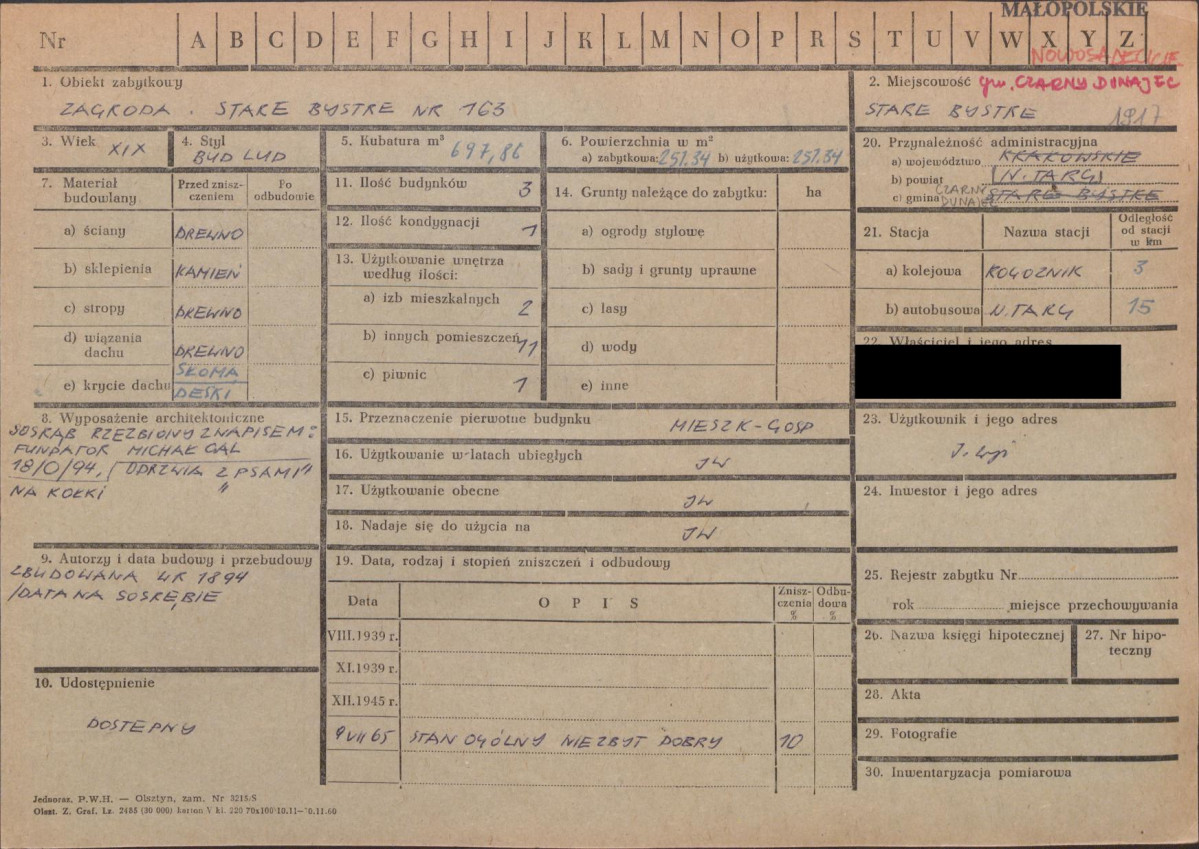 MAŁOPOLSKIE
Nr A B C D E F G H I J K L M N O P R S T U V W X Y Z
NOWOSĄDECKIE
1. Obiekt zabytkowy
ZAGRODA. STARE BYSTRE NR 163
2. Miejscowość gm. CZARNY DUNAJEC
STARE BYSTRE 1917
3. Wiek XIX
4. Styl
BUD LUD
5. Kubatura m³
697,86
6. Powierzchnia w m²
a) zabytkowa: 251.34 b) użytkowa: 251.34
20. Przynależność administracyjna
a) województwo KRAKOWSKIE
b) powiat (N. TARG)
c) gmina CZARNY DUNAJEC STARE BYSTRE
7. Materiał budowlany
Przed zniszczeniem
Po odbudowie
a) ściany DREWNO
b) sklepienia KAMIEŃ
c) stropy DREWNO
d) wiązania dachu DREWNO
e) krycie dachu SŁOMA
DESKI
11. Ilość budynków 3
12. Ilość kondygnacji 1
13. Użytkowanie wnętrza
według ilości:
a) izb mieszkalnych 2
b) innych pomieszczeń 11
c) piwnic 1
14. Grunty należące do zabytku: ha
a) ogrody stylowe
b) sady i grunty uprawne
c) lasy
d) wody
e) inne
21. Stacja
Nazwa stacji
Odległość od stacji w km
a) kolejowa ROGOŹNIK 3
b) autobusowa N. TARG 15
22. Właściciel i jego adres
8. Wyposażenie architektoniczne
SOSRĄB RZEZBIONY Z NAPISEM:
FUNDATOR MICHAŁ GAL
18/0/94, ODRZWIA Z PSAMI"
NA KOŁKI "
15. Przeznaczenie pierwotne budynku
MIESZK-GOSP
16. Użytkowanie w latach ubiegłych
JW
17. Użytkowanie obecne
JW
18. Nadaje się do użycia na
JW
23. Użytkownik i jego adres
24. Inwestor i jego adres
9. Autorzy i data budowy i przebudowy
ZBUDOWANA W R 1894
/DATA NA SOSRĘBIE
19. Data, rodzaj i stopień zniszczeń i odbudowy
Data
O P I S
Zniszczenia %
Odbudowa %
VIII.1939 r.
XI.1939 r.
XII.1945 r.
9 VII 65 STAN OGÓLNY NIEZBYT DOBRY 10
25. Rejestr zabytku Nr
rok miejsce przechowywania
26. Nazwa księgi hipotecznej
27. Nr hipoteczny
28. Akta
29. Fotografie
30. Inwentaryzacja pomiarowa
10. Udostępnienie
DOSTEPNY
Jednoraz. P.W.H. — Olsztyn, zam. Nr 3215/S
Olszt. Z. Graf. Lz. 2485 (30 000) karton V kl. 220 70x100 10.11—10.11.60